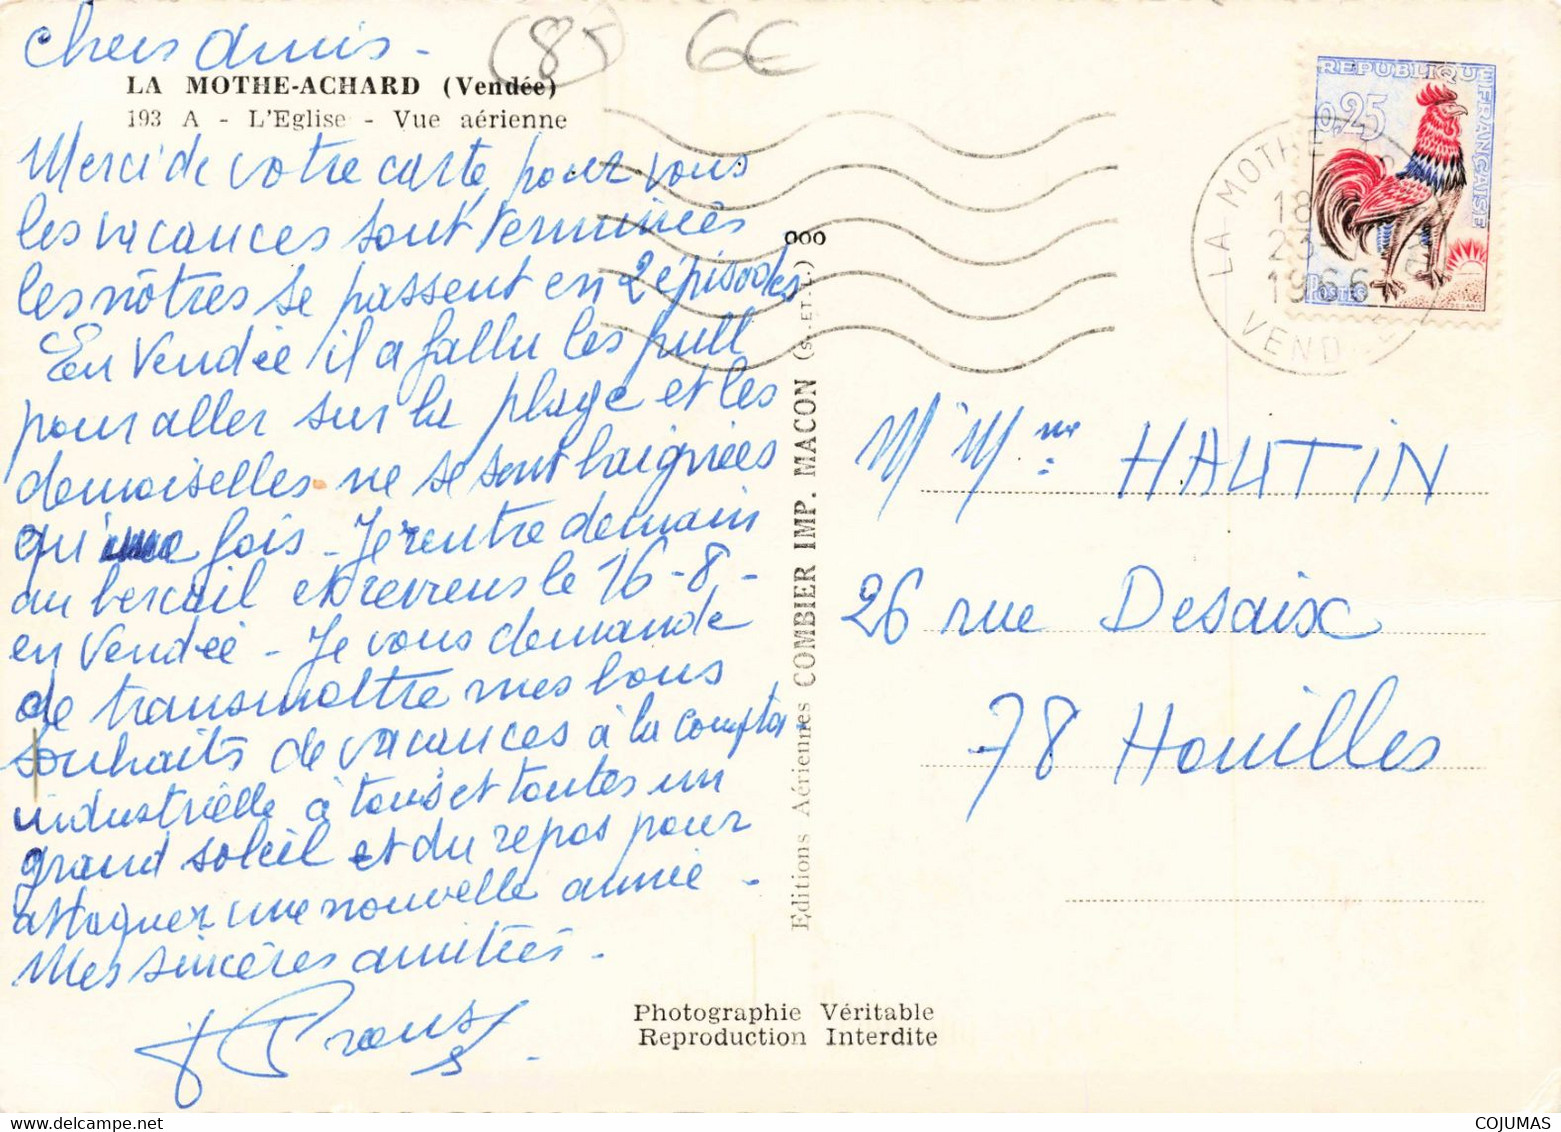 Chers amis -
(85) 6€
LA MOTHE-ACHARD (Vendée)
193 A - L'Eglise - Vue aérienne
Merci de votre carte, pour vous
les vacances sont terminées
les nôtres se passent en 2 épisodes
En Vendée il a fallu les pull
pour aller sur la plage et les
demoiselles ne se sont baignées
qu'une fois - Je rentre demain
au bercail et reviens le 16-8 -
en Vendée - Je vous demande
de transmettre mes bons
souhaits de vacances à la compta.
industrielle à tous et toutes un
grand soleil et du repos pour
attaquer une nouvelle année -
Mes sincères amitiés.
ooo
Editions Aériennes COMBIER IMP. MACON (S.-ET-L.)
REPUBLIQUE FRANÇAISE
0,25
POSTES
LA MOTHE
18
23
1966
VENDÉE
M Mme HAUTIN
26 rue Desaix
78 Houilles
Photographie Véritable
Reproduction Interdite
COJUMAS